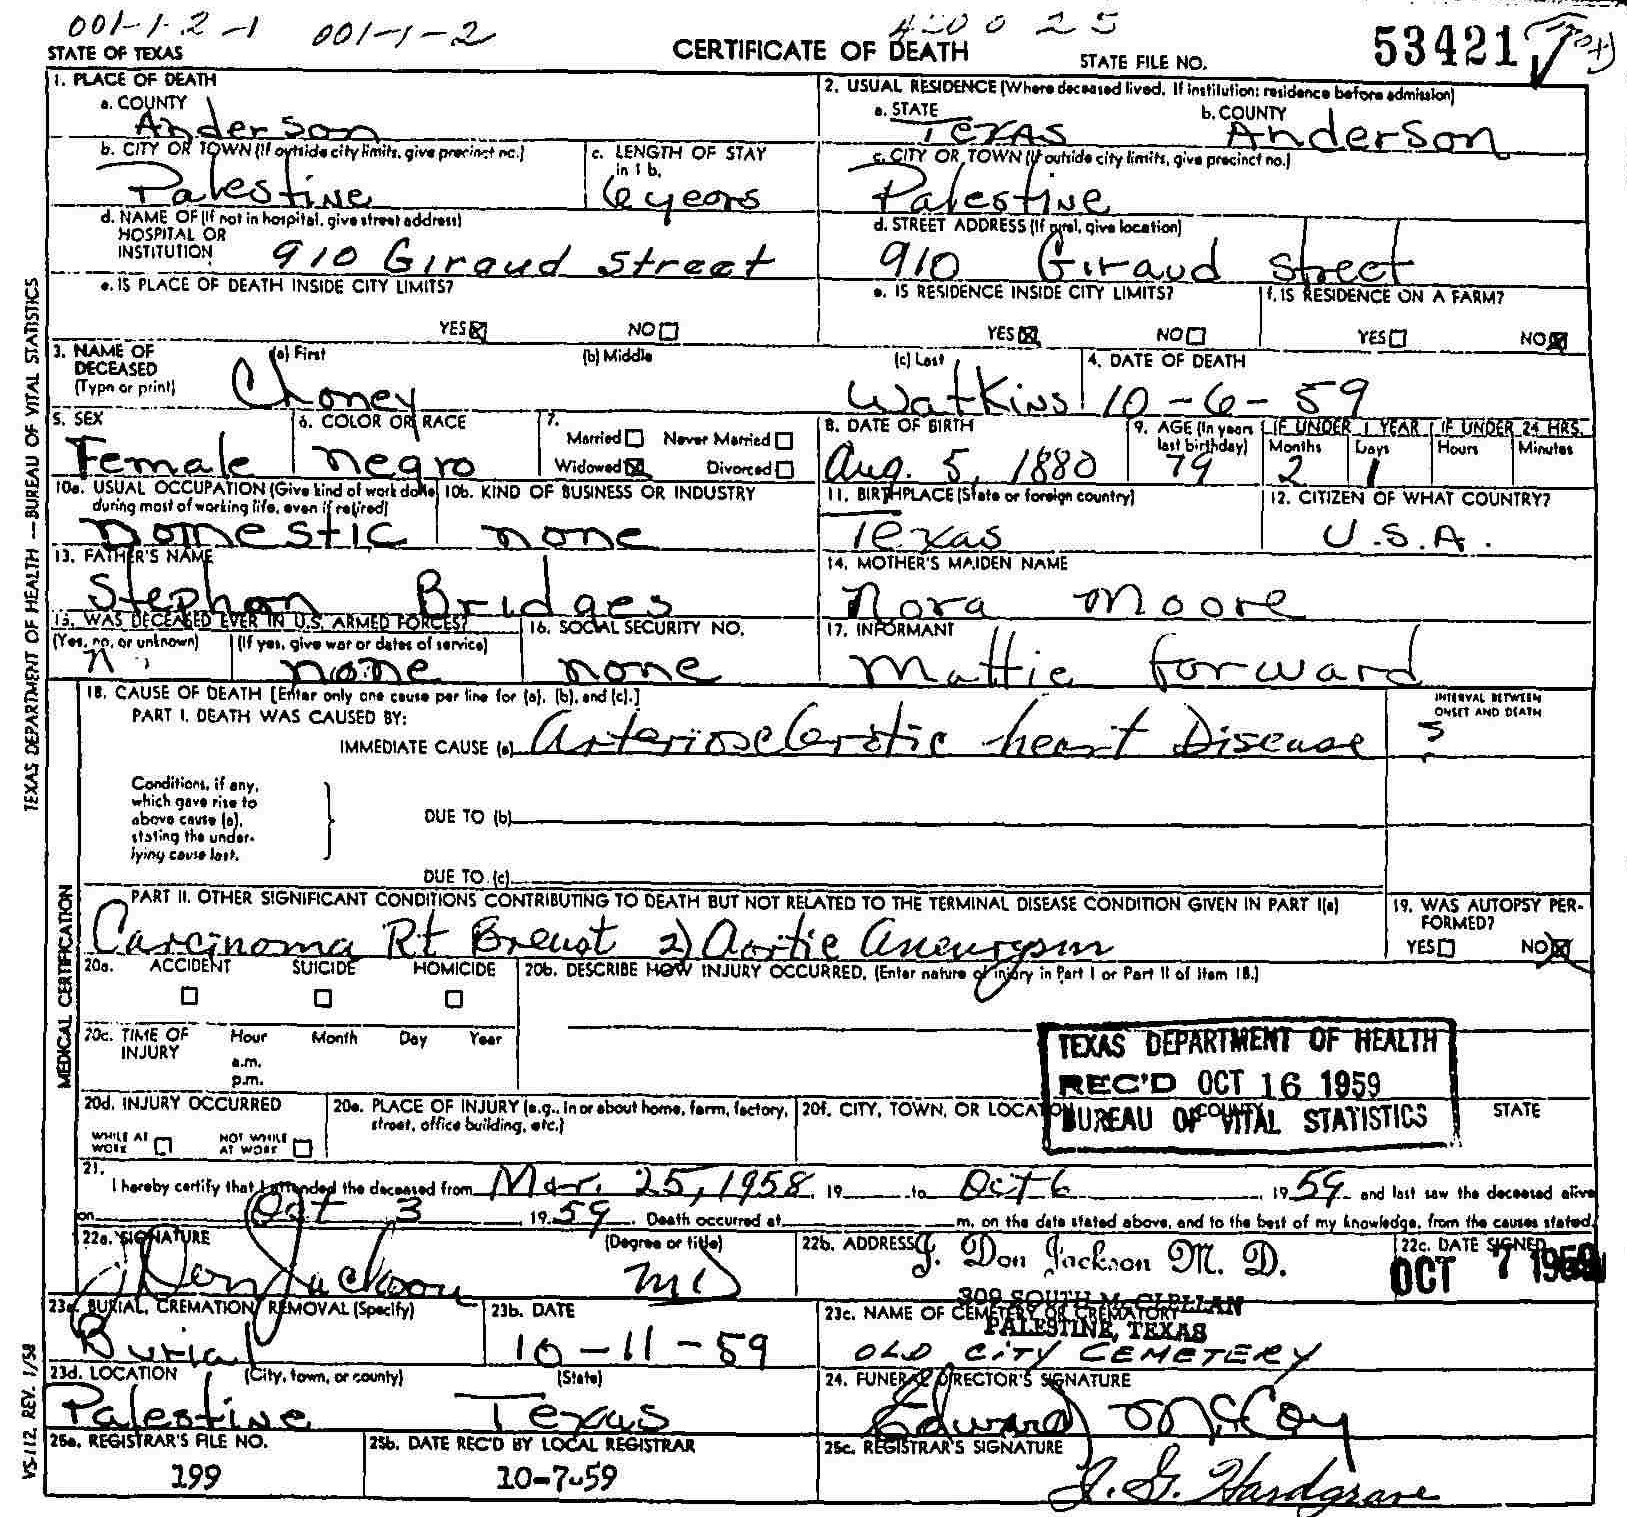 001-1-2-1 001-1-2
STATE OF TEXAS CERTIFICATE OF DEATH STATE FILE NO. 53421
1. PLACE OF DEATH
a. COUNTY
Anderson
2. USUAL RESIDENCE (Where deceased lived. If institution: residence before admission)
a. STATE b. COUNTY
Texas Anderson
b. CITY OR TOWN (If outside city limits, give precinct no.)
Palestine
c. LENGTH OF STAY in 1 b.
6 years
c. CITY OR TOWN (If outside city limits, give precinct no.)
Palestine
d. NAME OF (If not in hospital, give street address)
HOSPITAL OR
INSTITUTION 910 Giraud Street
d. STREET ADDRESS (If rural, give location)
910 Giraud Street
e. IS PLACE OF DEATH INSIDE CITY LIMITS?
YES NO
e. IS RESIDENCE INSIDE CITY LIMITS?
YES NO
f. IS RESIDENCE ON A FARM?
YES NO
3. NAME OF DECEASED (Type or print)
(a) First (b) Middle (c) Last
Choney Watkins
4. DATE OF DEATH
10-6-59
5. SEX
Female
6. COLOR OR RACE
negro
7.
Married Never Married
Widowed Divorced
8. DATE OF BIRTH
Aug. 5, 1880
9. AGE (In years last birthday)
79
IF UNDER 1 YEAR IF UNDER 24 HRS.
Months Days Hours Minutes
2 1
10a. USUAL OCCUPATION (Give kind of work done during most of working life, even if retired)
Domestic
10b. KIND OF BUSINESS OR INDUSTRY
none
11. BIRTHPLACE (State or foreign country)
Texas
12. CITIZEN OF WHAT COUNTRY?
U.S.A.
13. FATHER'S NAME
Stephon Bridges
14. MOTHER'S MAIDEN NAME
Nora Moore
15. WAS DECEASED EVER IN U.S. ARMED FORCES?
(Yes, no, or unknown) (If yes, give war or dates of service)
none
16. SOCIAL SECURITY NO.
none
17. INFORMANT
Mattie Forward
18. CAUSE OF DEATH [Enter only one cause per line for (a), (b), and (c).]
PART I. DEATH WAS CAUSED BY:
IMMEDIATE CAUSE (a) Arteriosclerotic heart Disease
INTERVAL BETWEEN
ONSET AND DEATH
5
Conditions, if any,
which gave rise to
above cause (a),
stating the under-
lying cause last.
DUE TO (b)
DUE TO (c)
PART II. OTHER SIGNIFICANT CONDITIONS CONTRIBUTING TO DEATH BUT NOT RELATED TO THE TERMINAL DISEASE CONDITION GIVEN IN PART I(a)
Carcinoma Rt Breast 2) Aortic Aneurysm
19. WAS AUTOPSY PER-
FORMED?
YES NO
20a. ACCIDENT SUICIDE HOMICIDE
20b. DESCRIBE HOW INJURY OCCURRED. (Enter nature of injury in Part I or Part II of Item 18.)
20c. TIME OF INJURY Hour Month Day Year
a.m.
p.m.
TEXAS DEPARTMENT OF HEALTH
REC'D OCT 16 1959
BUREAU OF VITAL STATISTICS
20d. INJURY OCCURRED
WHILE AT WORK NOT WHILE AT WORK
20e. PLACE OF INJURY (e.g., in or about home, farm, factory, street, office building, etc.)
20f. CITY, TOWN, OR LOCATION COUNTY STATE
21.
I hereby certify that I attended the deceased from Mar. 25, 1958, 19 to Oct 6 1959 and last saw the deceased alive
on Oct 3 1959. Death occurred at m. on the date stated above, and to the best of my knowledge, from the causes stated.
22a. SIGNATURE (Degree or title)
J Don Jackson MD
22b. ADDRESS
J. Don Jackson M. D.
309 SOUTH McCLELLAN
PALESTINE, TEXAS
22c. DATE SIGNED
OCT 7 1959
23a. BURIAL, CREMATION, REMOVAL (Specify)
Burial
23b. DATE
10-11-59
23c. NAME OF CEMETERY OR CREMATORY
OLD CITY CEMETERY
23d. LOCATION (City, town, or county) (State)
Palestine Texas
24. FUNERAL DIRECTOR'S SIGNATURE
Edward McCoy
25a. REGISTRAR'S FILE NO.
199
25b. DATE REC'D BY LOCAL REGISTRAR
10-7-59
25c. REGISTRAR'S SIGNATURE
J. G. Hardgrave
TEXAS DEPARTMENT OF HEALTH — BUREAU OF VITAL STATISTICS
MEDICAL CERTIFICATION
VS-112, REV. 1/58